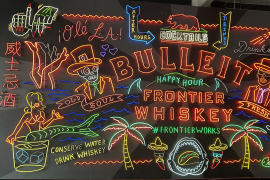 ¡Olé LA!
AFTER HOURS
COCKTAILS
BULLEIT
威士忌酒
LOST SOUL
HAPPY HOUR
FRONTIER
WHISKEY
#FRONTIERWORKS
CONSERVE WATER
DRINK WHISKEY